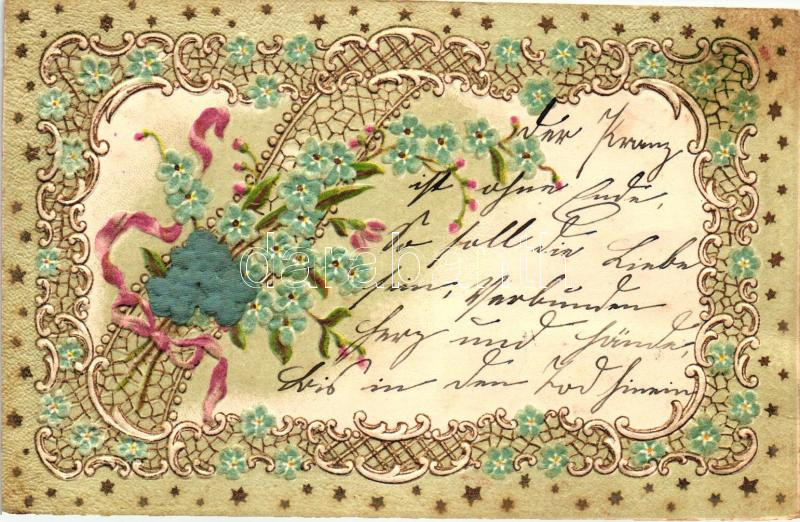 der Kranz
ist ohne Ende,
so soll die Liebe
sein, Verbunden
Herz und Hände,
bis in den Tod hinein
darabanth